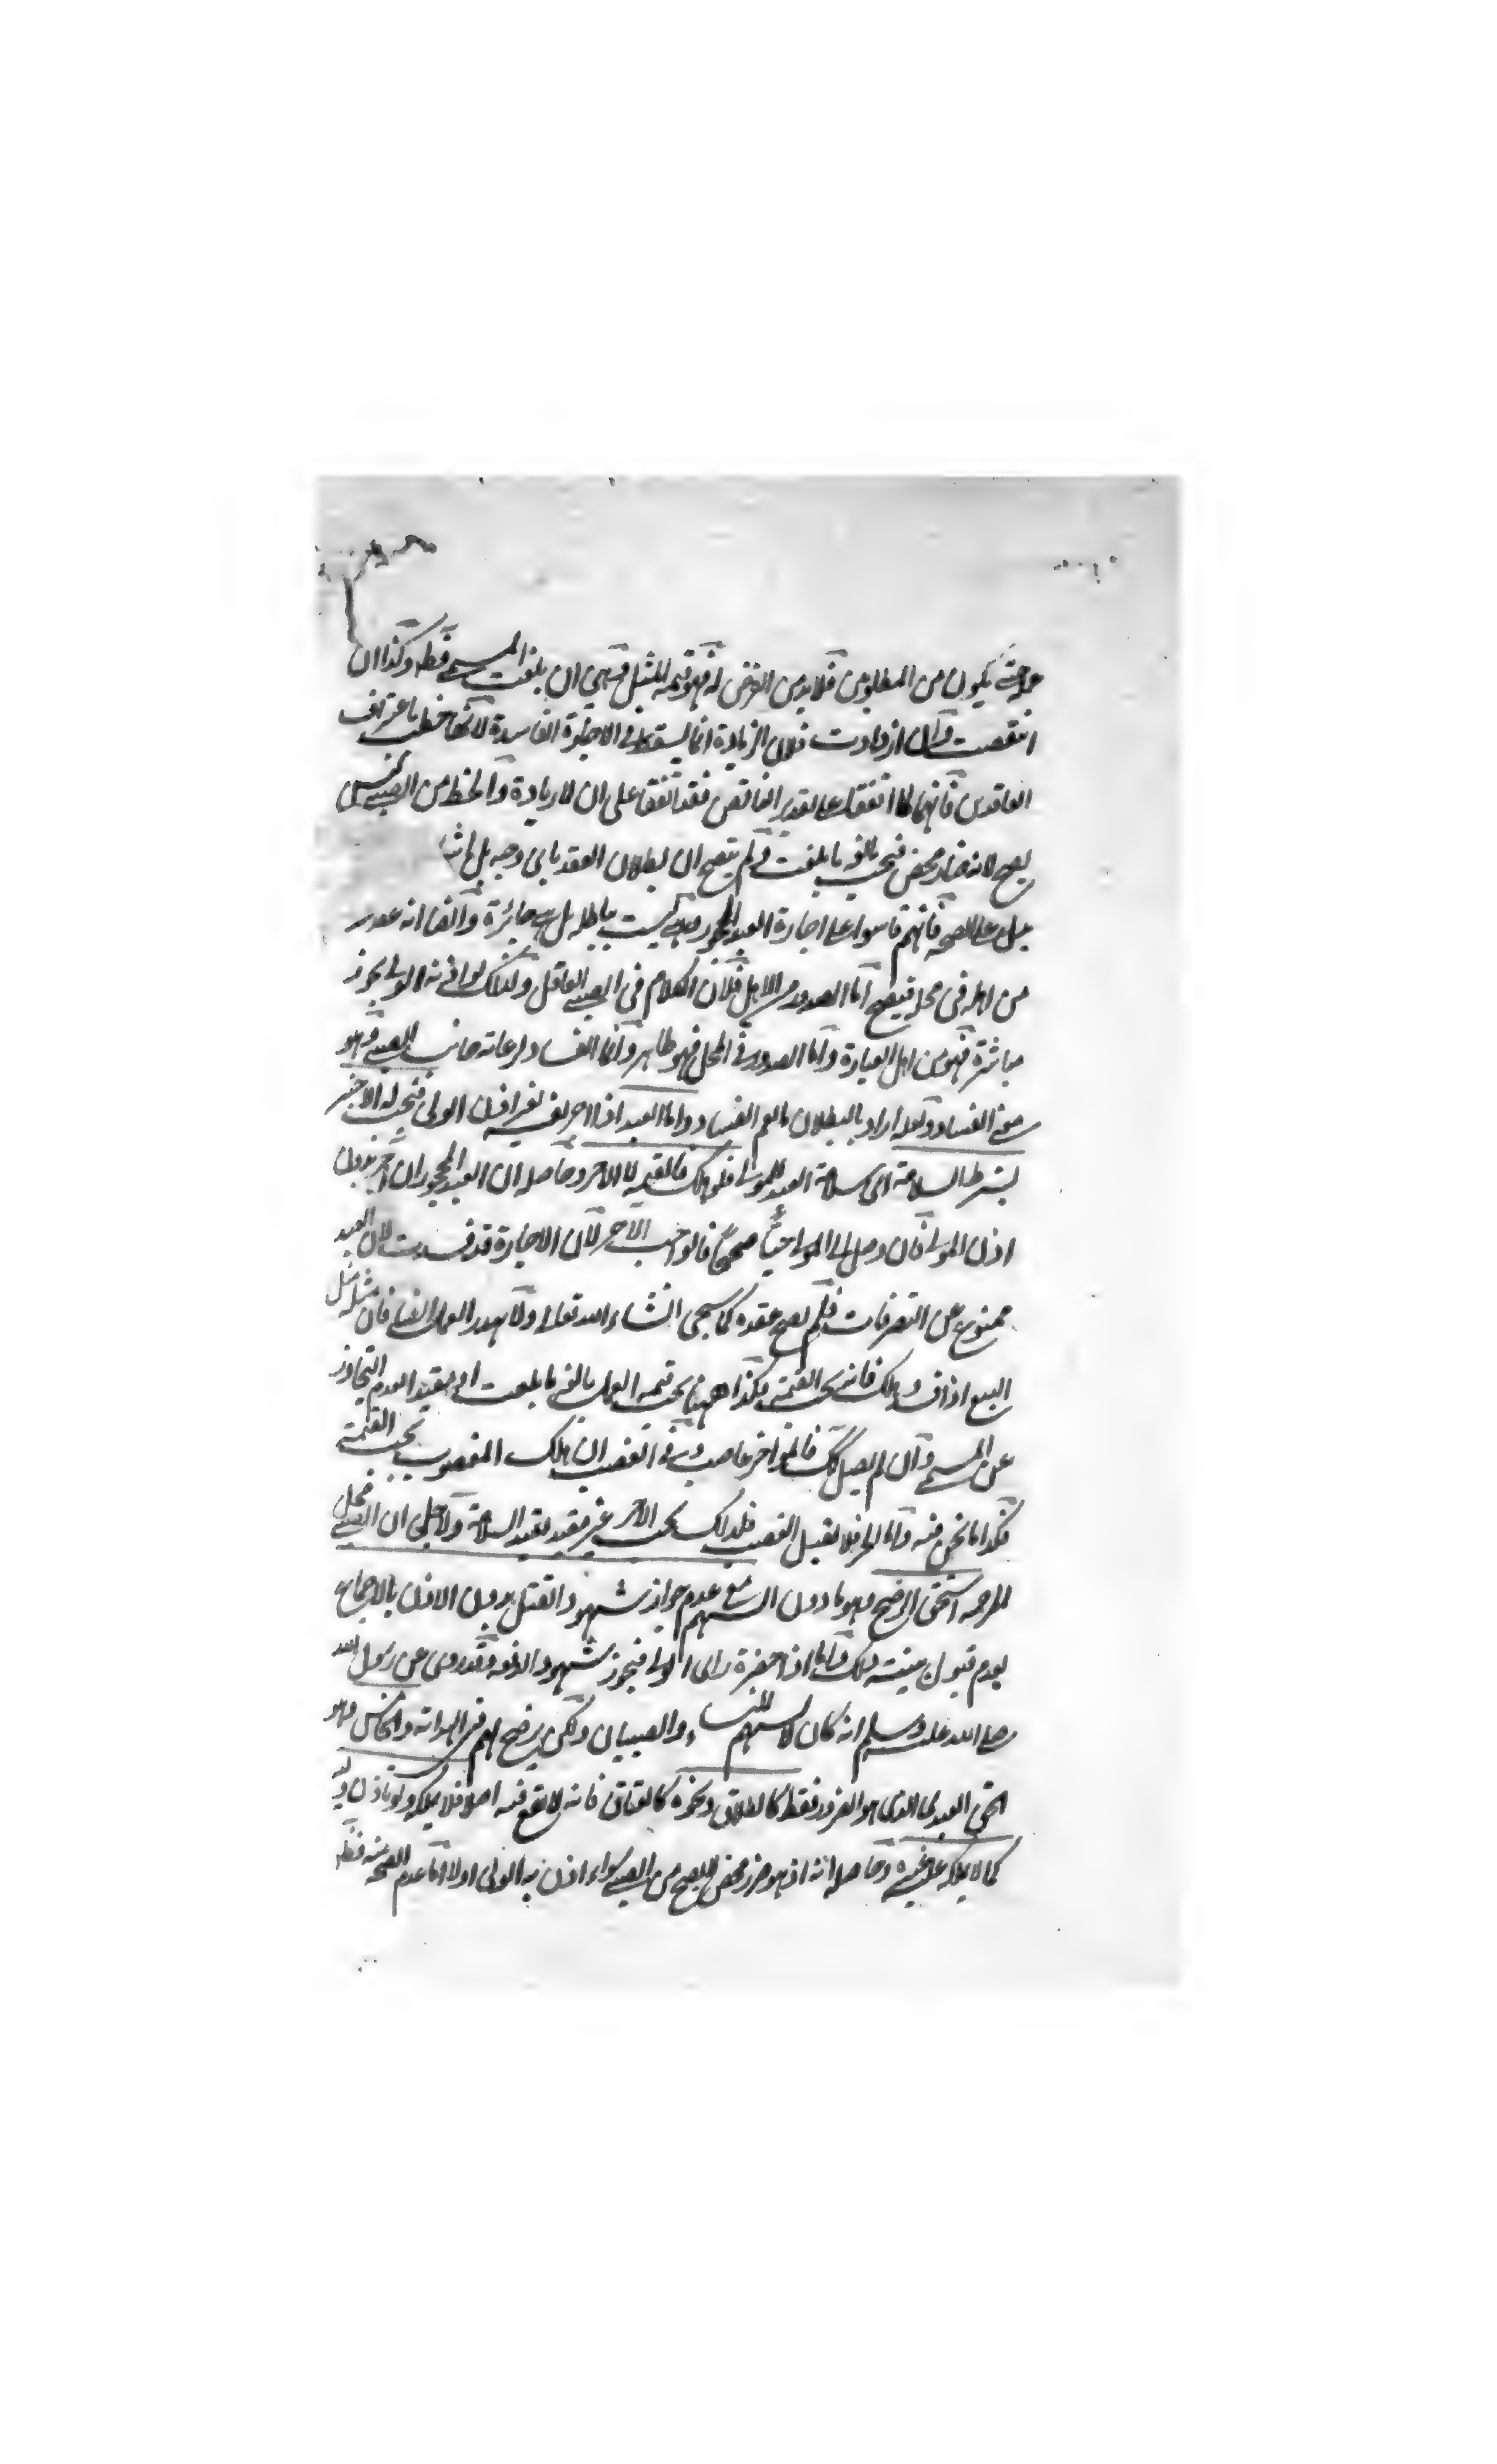 يكون من المظلومين فلا بد من العوض له فهو قيمة المثل فهي ان بلغت المسمى فظ وكذا ان
انتقصت وان ازدادت فلان الزيادة انما يسقط في الاجارة الفاسدة لانها حطت باعتراف
العاقدين فانهما لما اتفقا على تقدير الناقص فقد اتفقا على ان لا زيادة والحط من الصبي ليس
يصح لانه ضرر محض فتجب بالغة ما بلغت ولم يتضح ان بطلان العقد باي وجه بل
يدل على الصحة فانهم قاسوا على اجارة العبد المحجور وهي ليست بباطلة بل هي جائزة وايضا انه عقد صدر
من اهله في محله فيصح اما الصدور من الاهل فلان الكلام في الصبي العاقل ولذلك لو اذنه الولي يجوز
مباشرة فهو من اهل العبارة واما الصدور في المحل فهو ظاهر وانما الفساد لرعاية جانب الصبي وهو
معنى الفساد ولعله اراد بالبطلان ما يعم الفساد واما العبد اذا اجر نفسه بغير اذن الولي فتجب له الاجر
بشرط السلامة اي سلامة العبد للمولى فلو هلك فالقيمة لا الاجر وحاصله ان العبد المحجور ان اجر بدون
اذن المولى فان وصل الى المولى حيا صحيحا فالواجب الاجر لان الاجارة قد فسدت لان العبد
ممنوع عن التصرفات فلم يصح عقده كما سيجي انشاء الله تعالى ولا يهدر العمل ايضا فان مثله مثل
البيع اذا فسد وهلك فانه يجب القيمة هكذا ههنا يجب قيمة العمل بالغة ما بلغت او بقيد العدم التجاوز
عن المسمى وان لم يصل كك فالمواجر غاصب وفي الغصب ان هلك المغصوب يجب القيمة
فكذا ما نحن فيه واما الحر فلا يقبل الغصب فلذلك يجب الاجر غير مقيد بقيد السلامة ولاجل ان الصبي محل
للمرحمة استحق الرضخ وهو ما دون السهم مع عدم جواز شهود القتل بدون الاذن بالاجماع
بعدم قبول بنيته ذلك واما اذا حضره راى الولي فيجوز شهود الدفعة وقد روي عن رسول الله
صلى الله عليه وسلم انه كان لا يسهم للنساء والصبيان ولكن يرضخ لهم في الهداية والخامس وهو
حق العبد لما الذي هو الضرر فقط كالطلاق ونحوه كالعتاق فانه لا نفع فيه اصلا فلا يملكه ولو باذن وليه
كما لا يملكه عليه غيره وحاصله انه اذ هو ضرر محض لا يصح من الصبي سواء اذن به الولي اولا اما عدم الصحة منه فظ